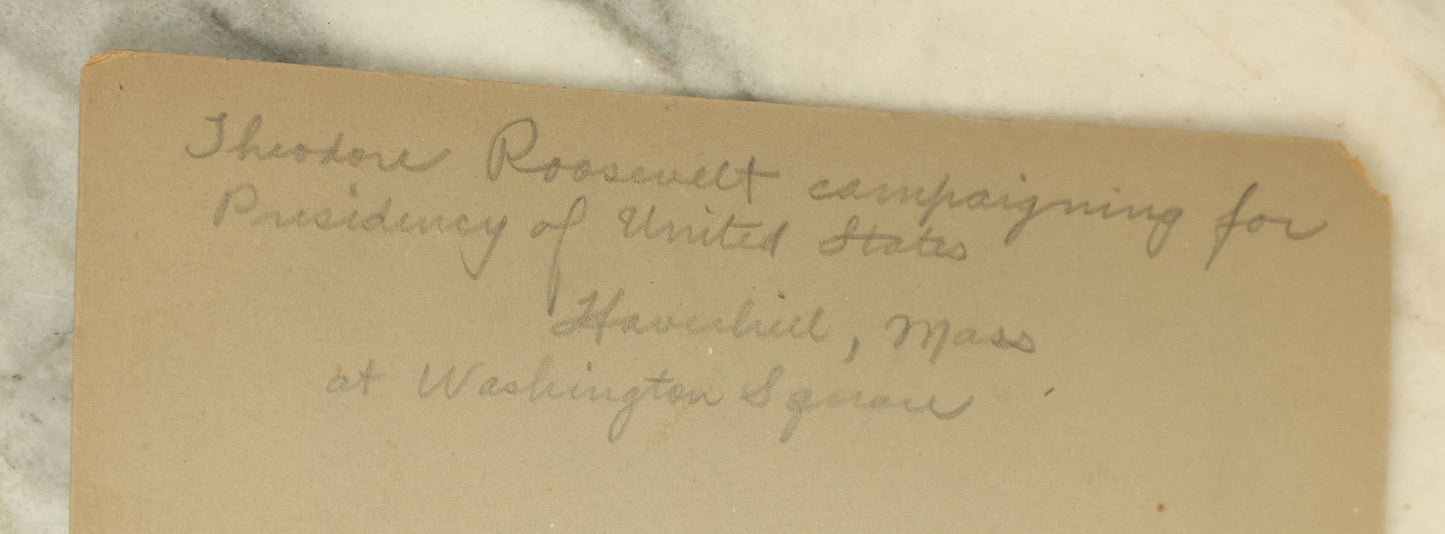 Theodore Roosevelt campaigning for
Presidency of United States
Haverhill, Mass
at Washington Square